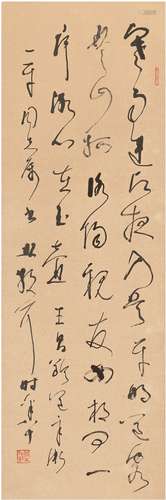 寒雨連江夜入吴平明送客
楚山孤洛陽親友如相问一
片冰心在玉壶王昌龄送辛渐
一平同志属书林散耳时年八十